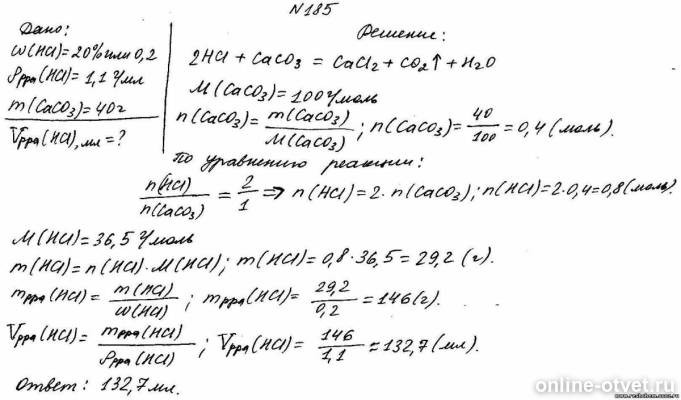 N185
Дано:
ω(HCl)=20% или 0,2
ρрра(HCl)=1,1 г/мл
m(CaCO3)=40г
Vрра(HCl), мл = ?
Решение:
2HCl + CaCO3 = CaCl2 + CO2↑ + H2O
M(CaCO3)=100 г/моль
n(CaCO3)= m(CaCO3)/M(CaCO3); n(CaCO3)= 40/100 = 0,4 (моль).
По уравнению реакции:
n(HCl)/n(CaCO3) = 2/1 => n(HCl)=2·n(CaCO3); n(HCl)=2·0,4=0,8(моль).
M(HCl)=36,5 г/моль
m(HCl)=n(HCl)·M(HCl); m(HCl)=0,8·36,5=29,2 (г).
mрра(HCl)= m(HCl)/ω(HCl); mрра(HCl)= 29,2/0,2 =146(г).
Vрра(HCl)= mрра(HCl)/ρрра(HCl); Vрра(HCl)= 146/1,1 ≈132,7(мл).
Ответ: 132,7мл.
online-otvet.ru